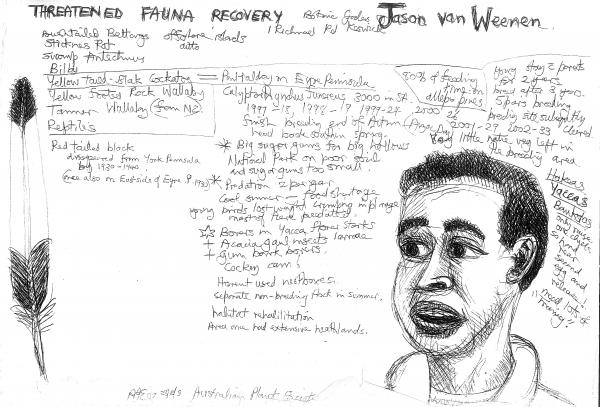 THREATENED FAUNA RECOVERY
Botanic Gardens
Richmond Rd Keswick
Jason van Weenen
Brush tailed Bettongs
Sticknes Rat
Swamp Antechinus
offshore islands
Bilby
Yellow tailed-Black Cockatoo = Pop'n Eyre Peninsula
Yellow footed Rock Wallaby
Tammar Wallaby (from NZ.
Reptiles
Calyptorhynchus funereus 3000 in SA.
1997-18, 1998-19 1999-22, 2000-22
2001-27 2002-33
finish breeding end of Autumn
head back south in spring.
* Big sugar gums for big hollows
National Park on poor soil
and sugar gums too small.
* Predation 2 per year
Cool summer - food shortage
young birds lost weight
most of these predated.
Borers in Yacca flower stalks
+ Acacia gall insects larvae
+ Gum bark borers.
Cockey cam!
Haven't used nestboxes.
seperate non-breeding flock in summer.
habitat rehabilitation
Area once had extensive heathlands.
Red tailed black
disappeared from York Peninsula
by 1930-1940.
(once also on Eastside of Eyre P.
80% of feeding
time in
alleppo pines
Young stay 2 parents
for 2 years
breed after 3 years.
5 pairs breeding
breeding site subsequently cleared
Very little native veg left in
the breeding area.
Hakeas
Yaccas
Banksias
only raise
one chick.
And rear
second
egg and
release!
"need lots of
training"
Australian Plant Society